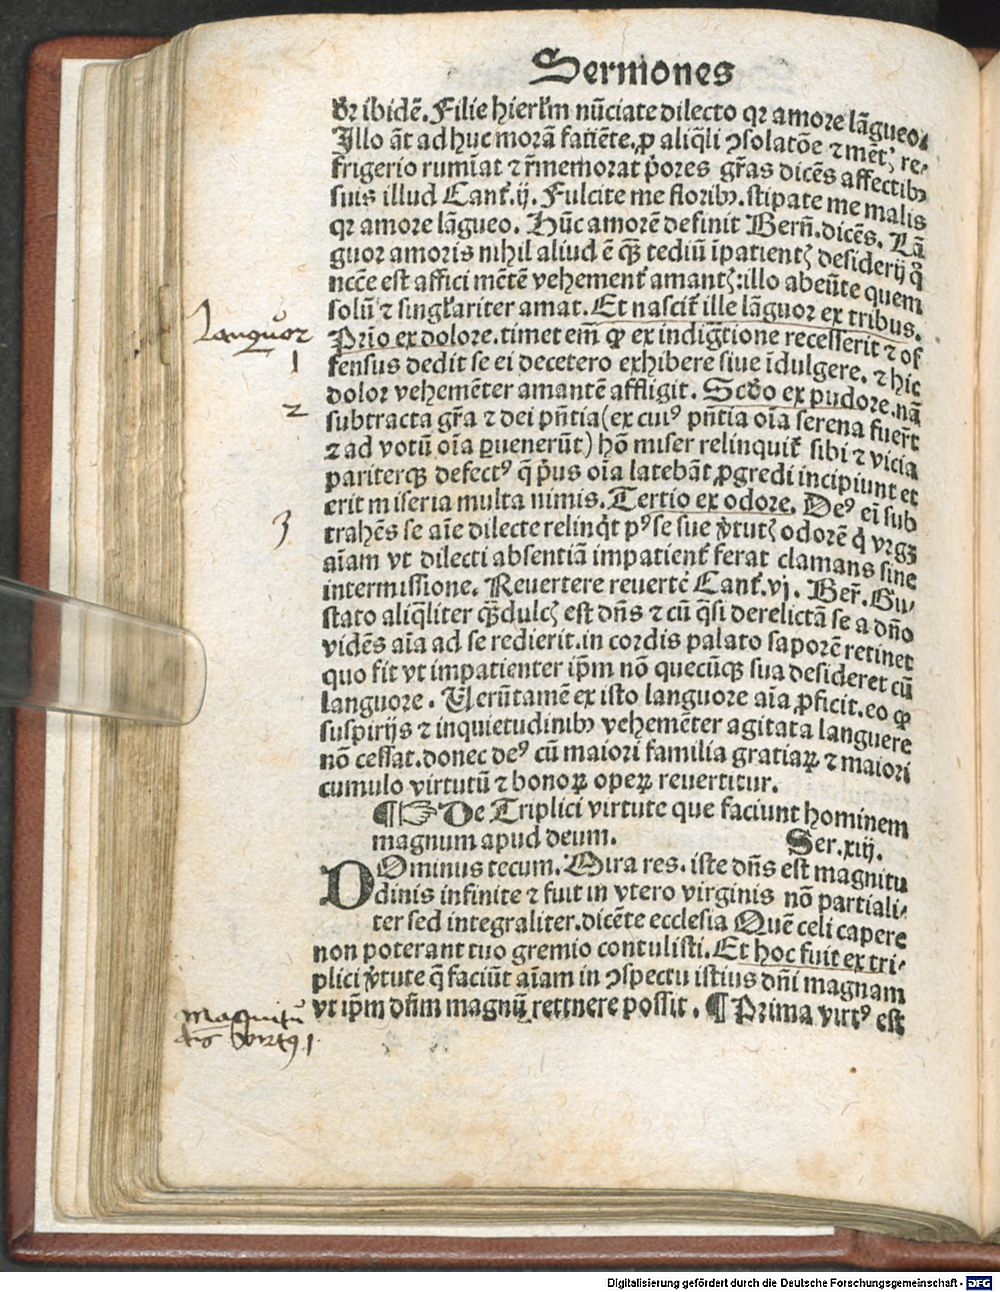 Sermones
dr ibidē. Filie hierl'm nūciate dilecto qꝛ amore lāgueo.
Illo āt ad huc morā faciēte, ꝓ aliq̄li ꝯsolatōe ⁊ mēt̉ re⸗
frigerio rumiāt ⁊ r̄memorat p̄ores gr̄as dicēs affectibꝰ
suis illud Cant̉.ij. Fulcite me floribꝰ. stipate me malis
qꝛ amore lāgueo. Hūc amorē definit Bern̄. dicēs. Lā
guor amoris nihil aliud ē qꝫ tediū īpatientꝭ desiderij q̊
ncc̄e est affici mētē vehement̉ amantꝭ: illo abeūte quem
solū ⁊ singl'ariter amat. Et nascit̉ ille lāguor ex tribus.
Languor
Prīo ex dolore. timet em̄ ꝙ ex indigt̄ione recesserit ⁊ of
1
fensus dedit se ei decetero exhibere siue īdulgere. ⁊ hic
dolor vehemēter amantē affligit. Scd̓o ex pudore. nā
2
subtracta gr̄a ⁊ dei pn̄tia (ex cuiꝰ pn̄tia oīa serena fuer̄t
⁊ ad votū oīa ꝑuenerūt) hō miser relinquit̉ sibi ⁊ vicia
pariterqꝫ defectꝰ q̄ p̓us oīa latebāt ꝓgredi incipiunt et
erit miseria multa nimis. Tertio ex odore. Deꝰ eī sub
3
trahēs se aīe dilecte relinq̇t pꝰ se sue v̓tutꝭ odorē q̇ vrgꝫ
aīam vt dilecti absentiā impatient̉ ferat clamans sine
intermissione. Reuertere reuert̓e Cant̉.vj. Ber̄. Gu⸗
stato aliq̄liter qꝫ dulcꝭ est dn̄s ⁊ cū q̄si derelictā se a dn̄o
vidēs aīa ad se redierit. in cordis palato saporē retinet
quo fit vt impatienter ip̄m nō quecūqꝫ sua desideret cū
languore. Uerūtamē ex isto languore aīa ꝓficit. eo ꝙ
suspirijs ⁊ inquietudinibꝰ vehemēter agitata languere
nō cessat. donec deꝰ cū maiori familia gratiaꝝ ⁊ maiori
cumulo virtutū ⁊ bonoꝝ opeꝝ reuertitur.
¶ ☞ De Triplici virtute que faciunt hominem
magnum apud deum. Ser.xiij.
DOminus tecum. Mira res. iste dn̄s est magnitu
dinis infinite ⁊ fuit in vtero virginis nō partiali⸗
ter sed integraliter. dicēte ecclesia Quē celi capere
non poterant tuo gremio contulisti. Et hoc fuit ex tri⸗
plici v̓tute q̄ faciūt aīam in ꝯspectu istius dn̄i magnam
vt ip̄m dn̄m magnū rettnere possit. ¶ Prima virtꝰ est
Magnitu
dīs virtꝰ 1
Digitalisierung gefördert durch die Deutsche Forschungsgemeinschaft - DFG